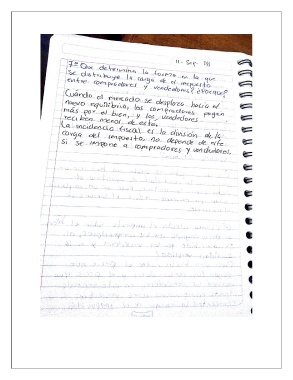 11-Sep-
1= Que determina la forma en la que
se distribuye la carga de el impuesto
entre compradores y vendedores? ¿Porque?
Cuando el mercado se desplaza hacia el
nuevo equilibrio, los compradores pagan
más por el bien, y los vendedores
reciben menos de este.
La incidencia fiscal es la división de la
carga del impuesto no depende de
si se impone a compradores y vendedores.